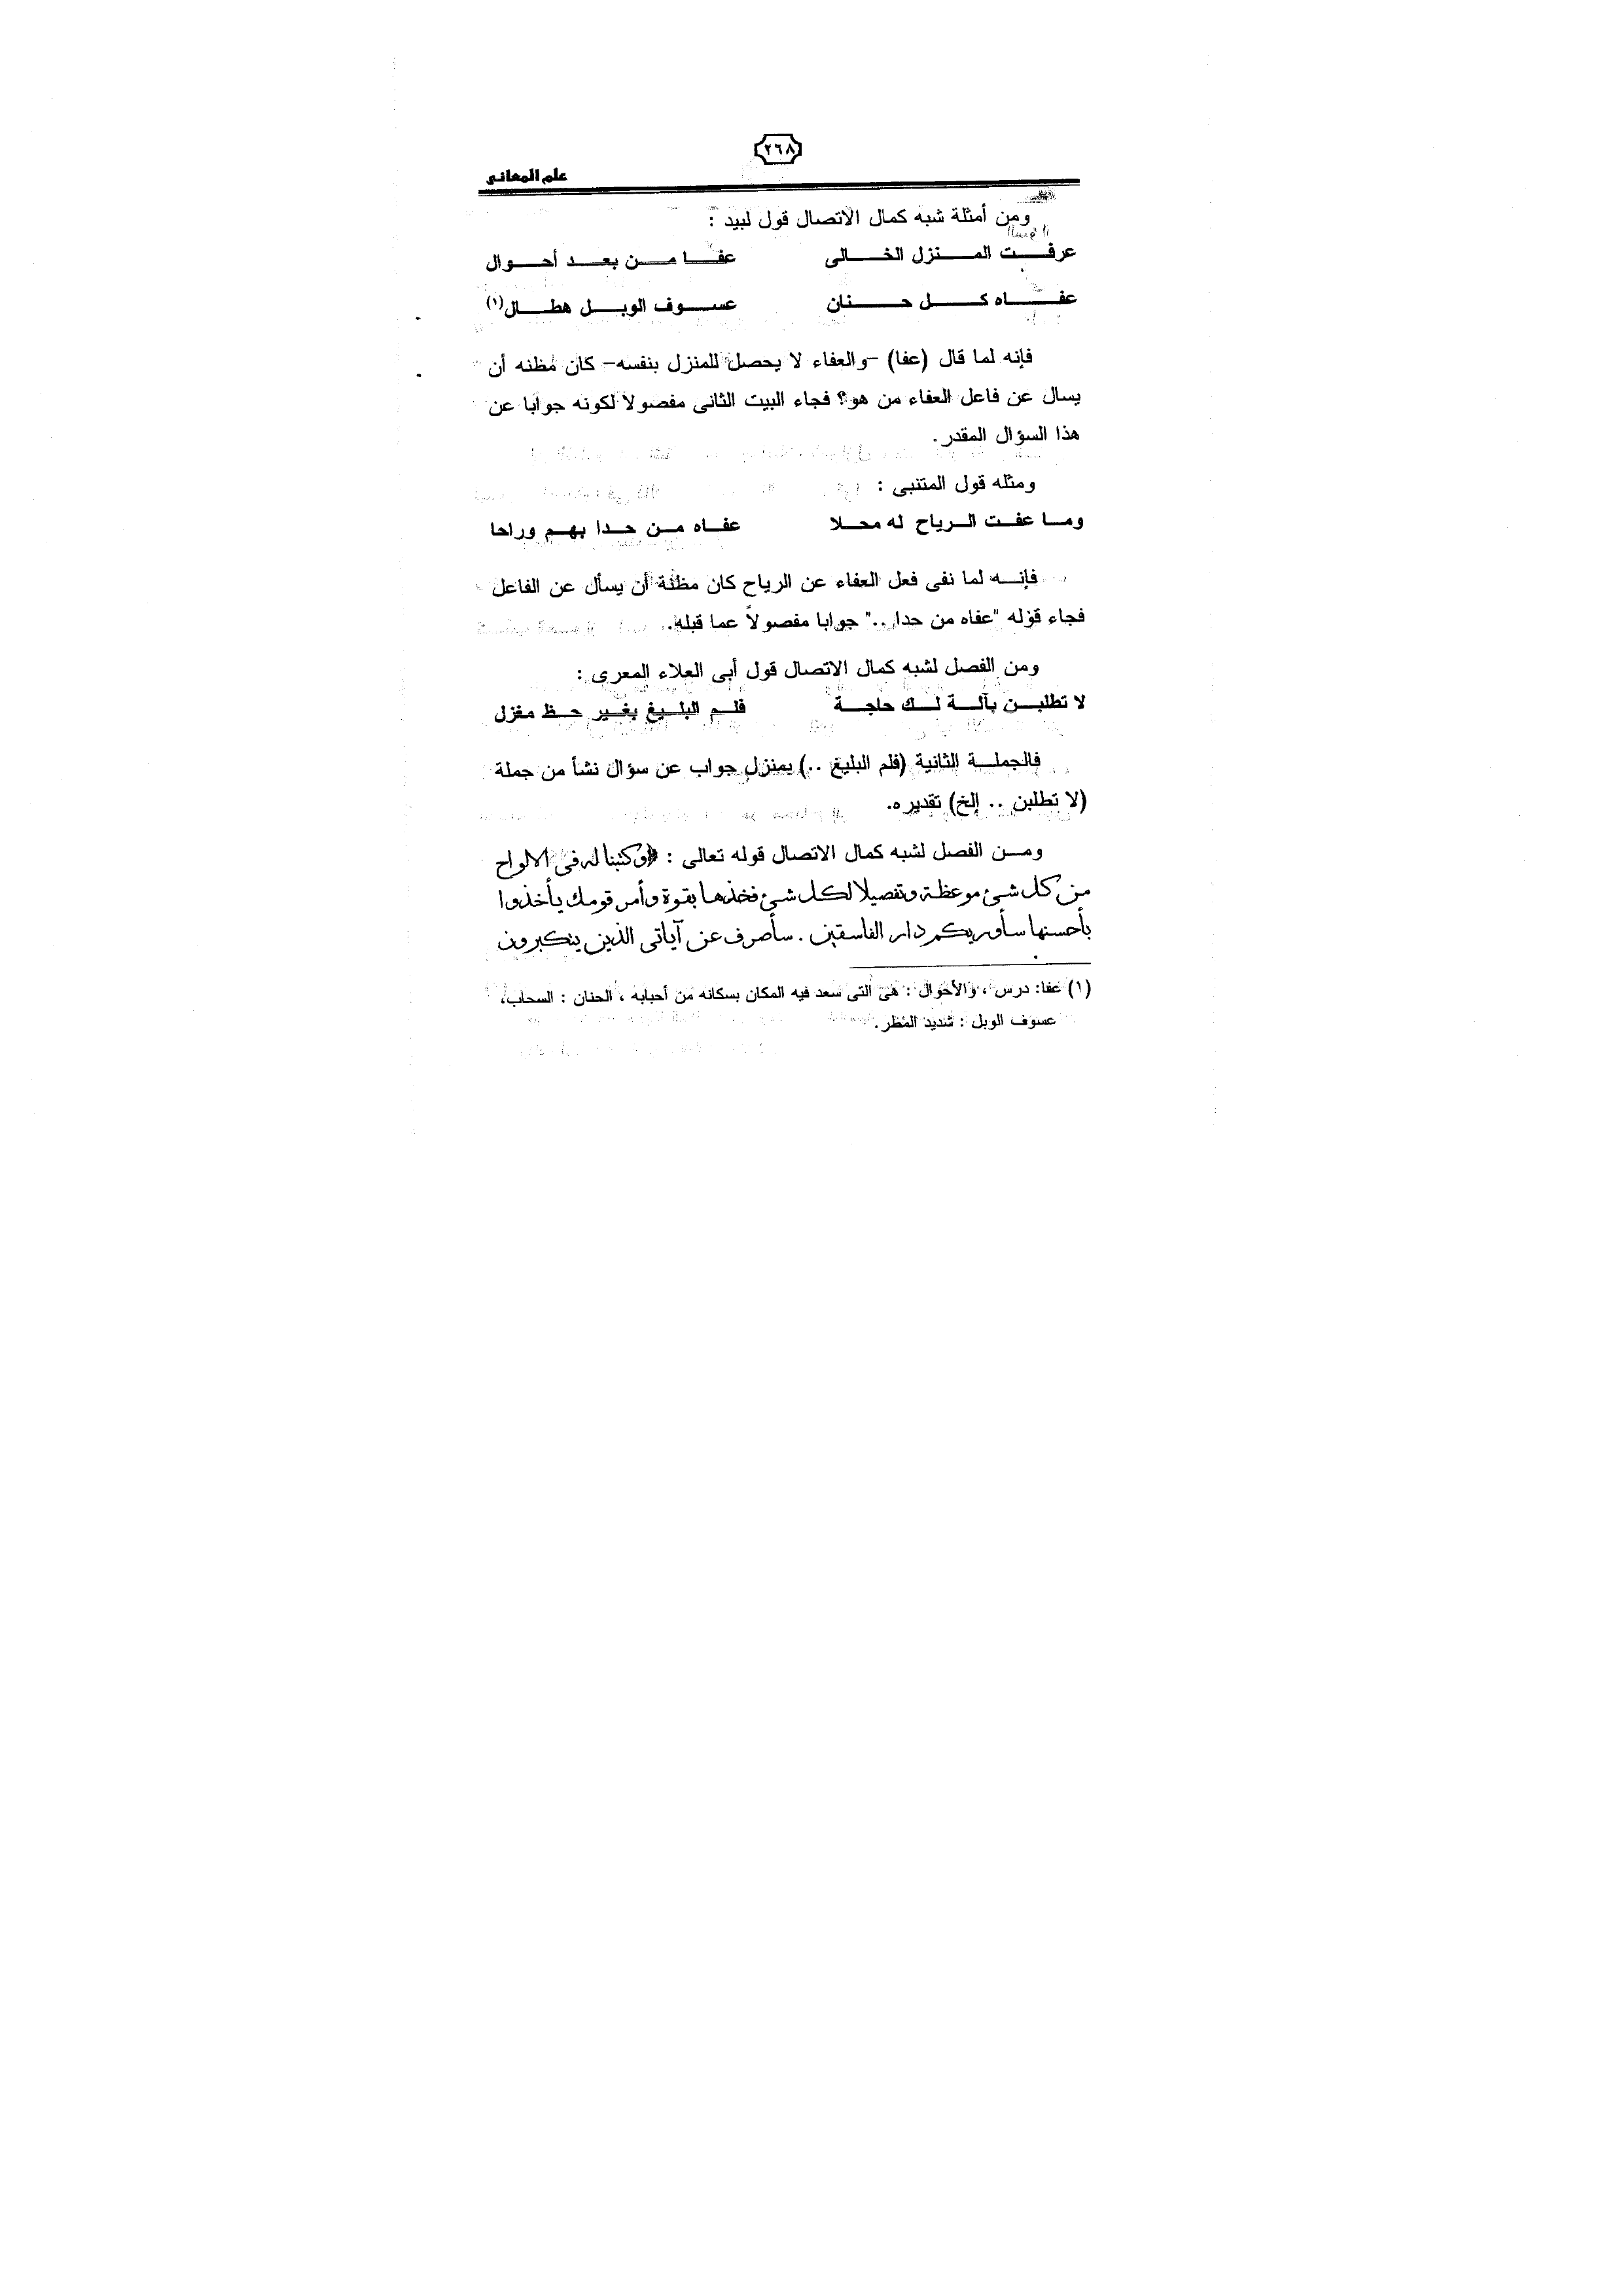 ٢٦٨
علم المعانى
ومن أمثلة شبه كمال الاتصال قول لبيد :
عرفت المنزل الخالى عفا من بعد أحوال
عفاه كل حنان عسوف الوبل هطال(١)
فإنه لما قال (عفا) -والعفاء لا يحصل للمنزل بنفسه- كان مظنه أن
يسال عن فاعل العفاء من هو؟ فجاء البيت الثانى مفصولا لكونه جوابا عن
هذا السؤال المقدر.
ومثله قول المتنبى :
وما عفت الرياح له محلا عفاه من حدا بهم وراحا
فإنه لما نفى فعل العفاء عن الرياح كان مظنة أن يسأل عن الفاعل
فجاء قوله "عفاه من حدا .." جوابا مفصولاً عما قبله.
ومن الفصل لشبه كمال الاتصال قول أبى العلاء المعرى :
لا تطلبن بآلة لك حاجة قلم البليغ بغير حظ مغزل
فالجملة الثانية (قلم البليغ ..) بمنزل جواب عن سؤال نشأ من جملة
(لا تطلبن .. إلخ) تقديره.
ومن الفصل لشبه كمال الاتصال قوله تعالى : ﴿وكتبنا له فى الالواح
من كل شئ موعظة وتفصيلا لكل شئ فخذها بقوة وأمر قومك يأخذوا
بأحسنها سأوريكم دار الفاسقين . سأصرف عن آياتى الذين يتكبرون
(١) عفا: درس ، والأحوال : هى التى سعد فيه المكان بسكانه من أحبابه ، الحنان : السحاب،
عسوف الوبل : شديد المطر.